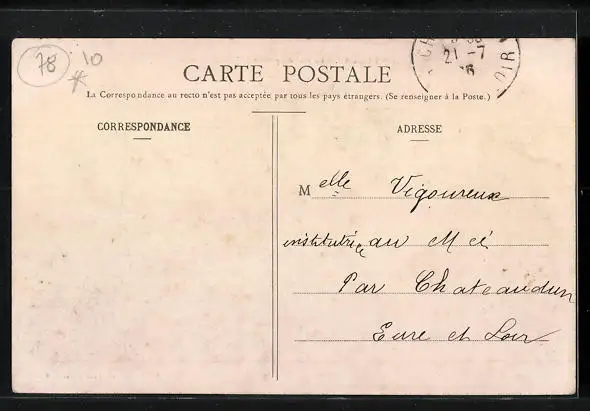 78
10
*
21 -7
OIR
CARTE POSTALE
La Correspondance au recto n'est pas acceptée par tous les pays étrangers. (Se renseigner à la Poste.)
CORRESPONDANCE
ADRESSE
Melle Vigoureux
institutrice au Mée
Par Chateaudun
Eure et Loir